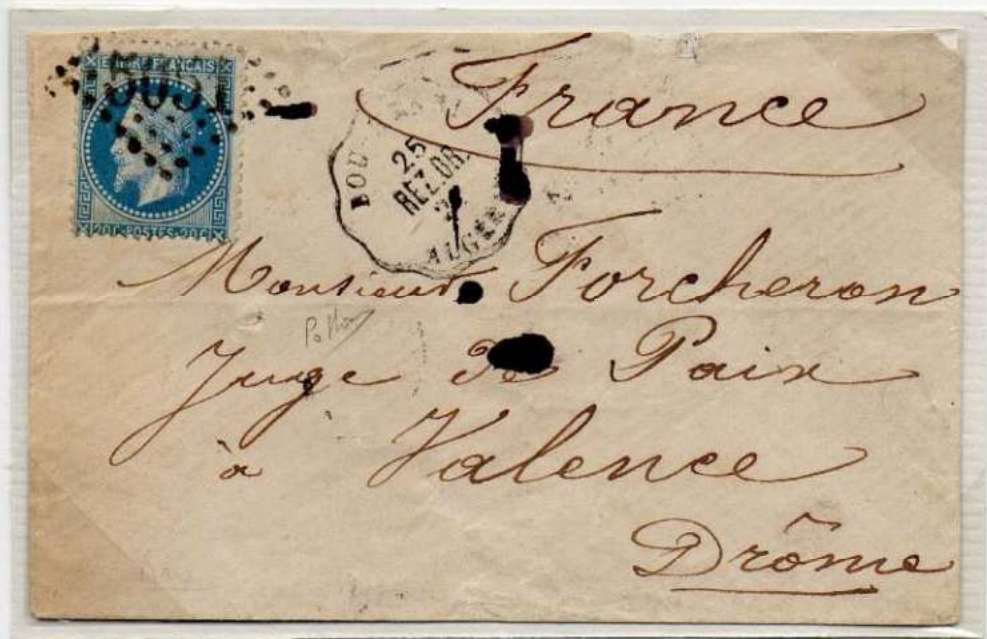 EMPIRE FRANÇAIS
5051
20 C POSTES 20 C
BOU
25
REZ.DR.
ALGER
France
Monsieur Forcheron
Juge de Paix
à Valence
Drôme